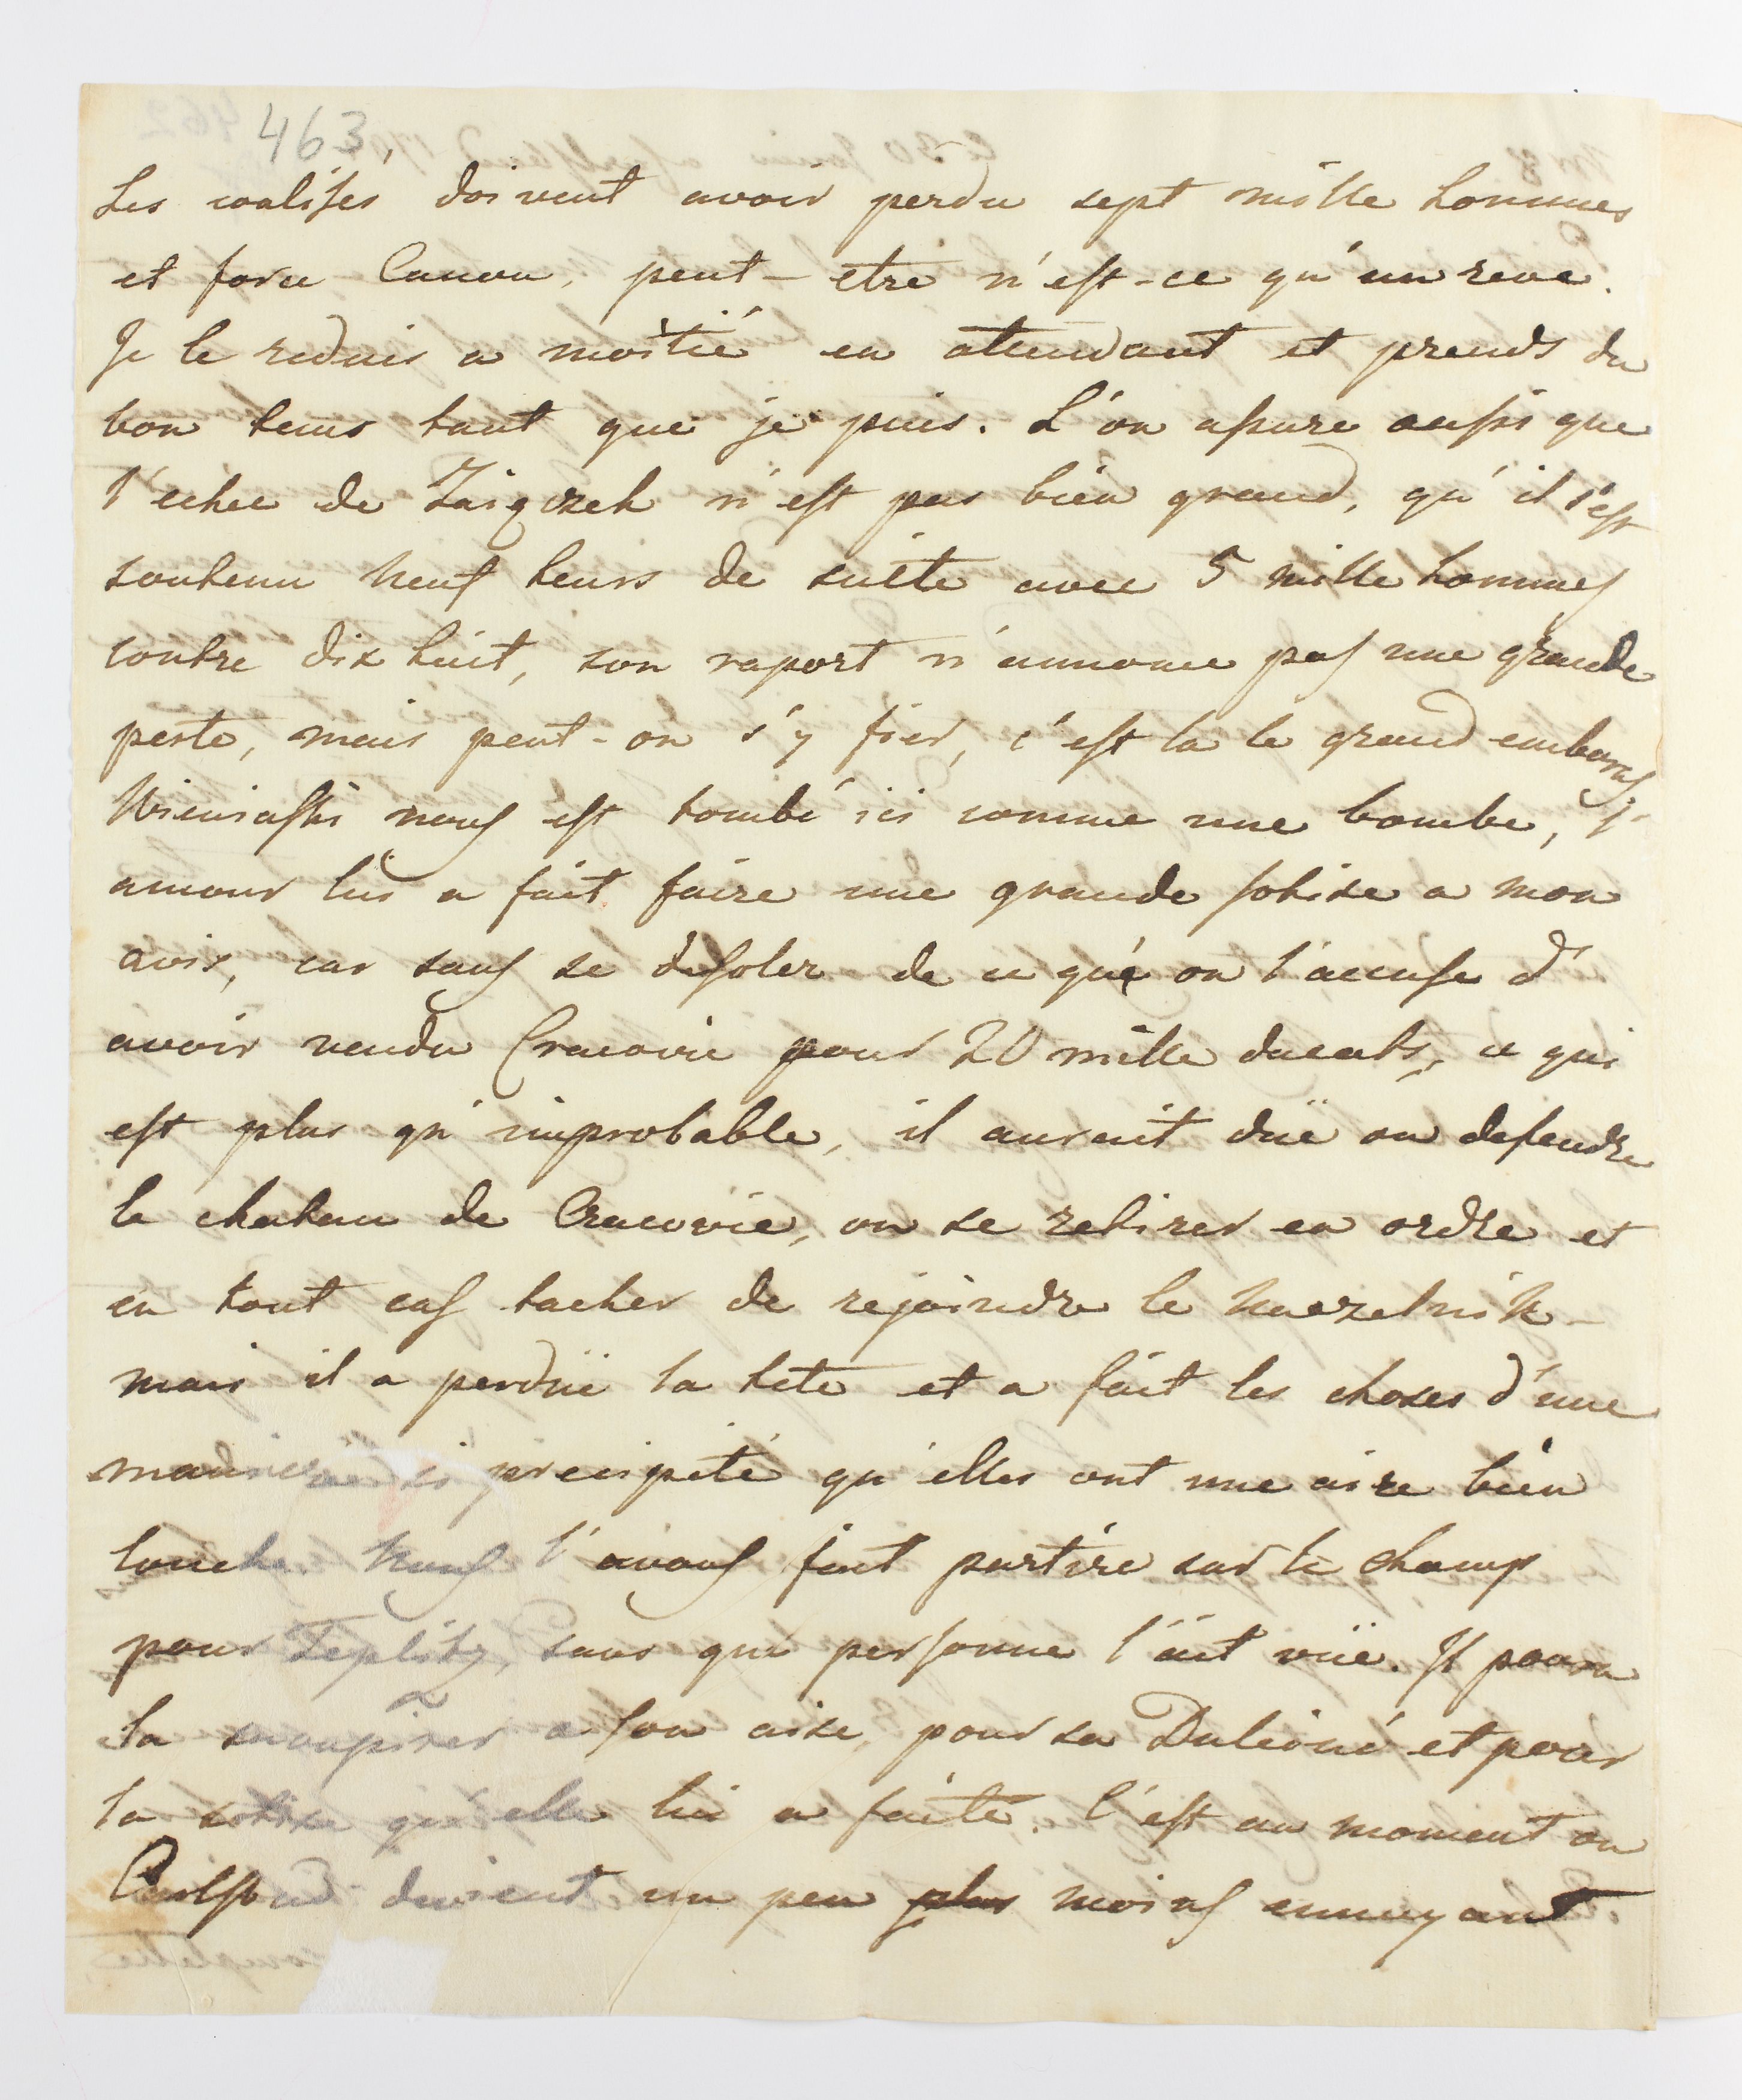 463.
Les coalisés doivent avoir perdu sept mille hommes
et force Canon, peut-etre n'est-ce qu'un reve.
Je le reduis a moitié en attendant et prends du
bon tems tant que je puis. L'on assure aussi que
l'echec de Zaigczek n'est pas bien grand, qu'il s'est
soutenu neuf heurs de suite avec 5 mille hommes
contre dix huit, son raport n'annonce pas une grande
perte, mais peut-on s'y fier, c'est la le grand embaras,
Wieniaski nous est tombé ici comme une bombe, l'
amour lui a fait faire une grande sotise a mon
avis, car sans se désoler de ce que on l'accuse d'
avoir vendu Cracovie pour 20 mille ducats, ce qui
est plus qu'improbable, il aurait düe ou defendre
le chateau de Cracovie, ou se retirer en ordre et
en tout cas tacher de rejoindre le Naczelnik -
mais il a perdüe la tete et a fait les choses d'une
maniere si precipité qu'elles ont une aire bien
louche. Nous l'avons fait partire sur le champ
pour Teplitz, sans que personne l'ait vüe. Il poura
la soupirer a son aise, pour sa Dulciné et pour
la sotise qu'elle lui a faite. C'est au moment ou
Carlsbad devient un peu plus moins ennuyant